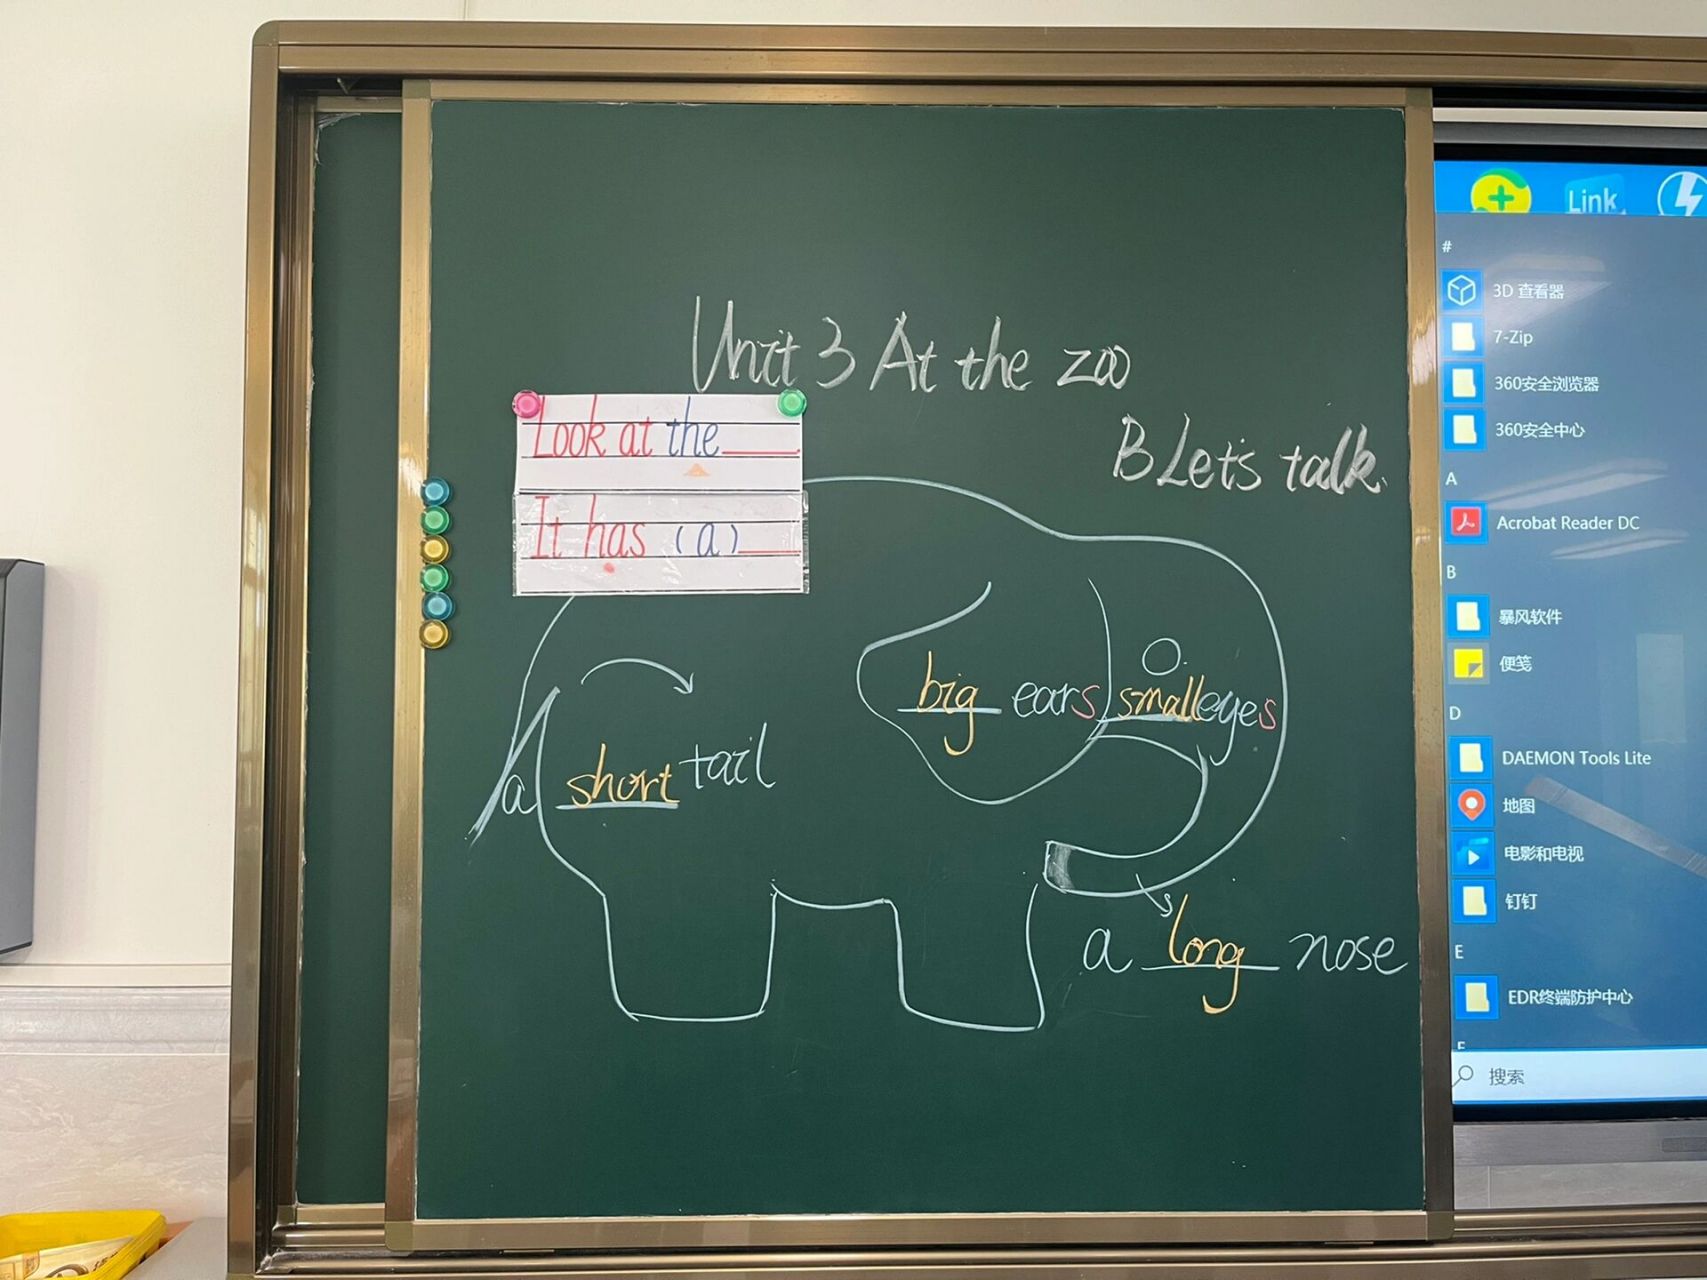 Unit 3 At the zoo
B Let's talk.
Look at the ____
It has (a) ____
big ears
small eyes
a short tail
a long nose
Link
#
3D 查看器
7-Zip
360安全浏览器
360安全中心
A
Acrobat Reader DC
B
暴风软件
便笺
D
DAEMON Tools Lite
地图
电影和电视
钉钉
E
EDR终端防护中心
F
搜索